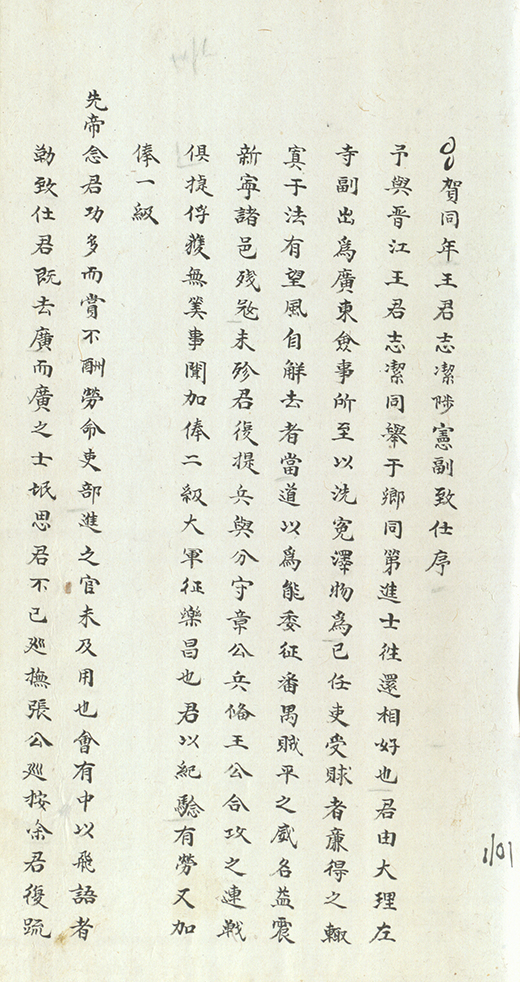 賀同年王君志潔陟憲副致仕序
予與晋江王君志潔同舉于鄉同第進士徃還相好也君由大理左
寺副出爲廣東僉事所至以洗寃澤物爲已任吏受賕者亷得之輙
寘于法有望風自解去者當道以爲能委征番禺賊平之威名益震
新寧諸邑残冦未殄君復提兵與分守章公兵俻王公合攻之連戰
俱捷俘獲無筭事聞加俸二級大軍征樂昌也君以紀騐有勞又加
俸一級
先帝念君功多而賞不酬勞命吏部進之官未及用也會有中以飛語者
勒致仕君既去廣而廣之士氓思君不已廵撫張公廵按余君復䟽
1101